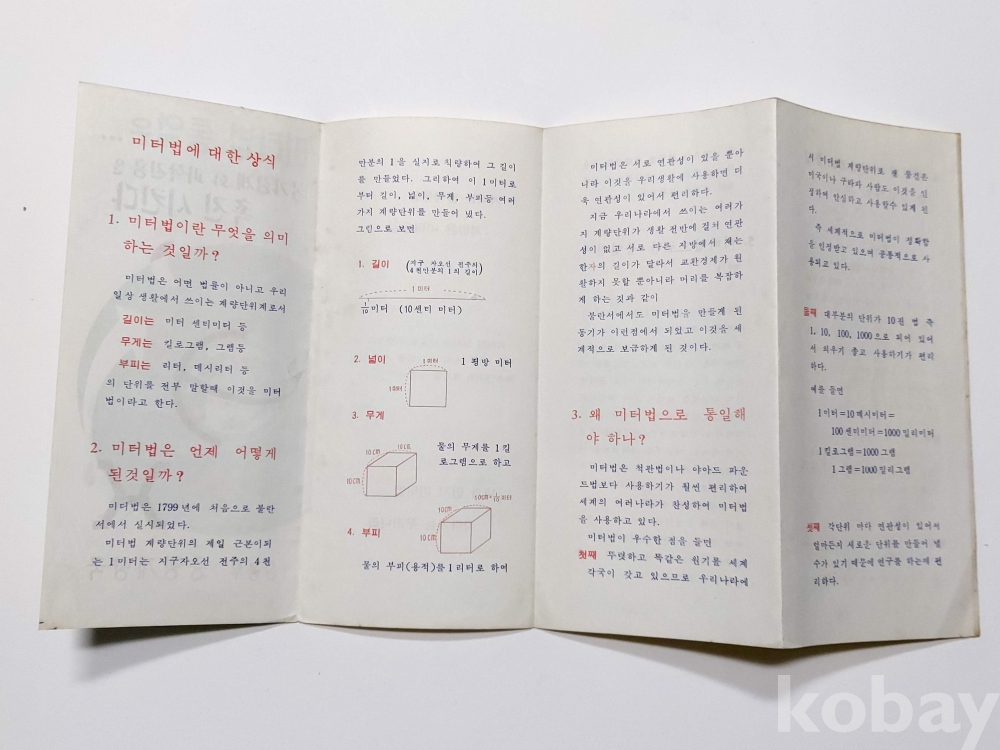 미터법에 대한 상식
1. 미터법이란 무엇을 의미
하는 것일까?
미터법은 어떤 법률이 아니고 우리
일상 생활에서 쓰이는 계량단위계로서
길이는 미터 센티미터 등
무게는 킬로그램, 그램등
부피는 리터, 데시리터 등
의 단위를 전부 말할때 이것을 미터
법이라고 한다.
2. 미터법은 언제 어떻게
된것일까?
미터법은 1799년에 처음으로 불란
서에서 실시되었다.
미터법 계량단위의 제일 근본이되
는 1미터는 지구자오선 전주의 4천
만분의 1을 실지로 칙량하여 그 길이
를 만들었다. 그리하여 이 1미터로
부터 길이, 넓이, 무게, 부피등 여러
가지 계량단위를 만들어 냈다.
그림으로 보면
1. 길이 (지구 자오선 전주의
4천만분의 1의 길이)
1 미터
1/10 미터 (10센티 미터)
2. 넓이 1미터 1 평방 미터
1미터
3. 무게
10cm 10cm 물의 무게를 1킬
10cm 로그램으로 하고
10cm=1/10미터
10cm
4. 부피 10cm
물의 부피(용적)를 1리터로 하여
미터법은 서로 연관성이 있을 뿐아
니라 이것을 우리생활에 사용하면 더
욱 연관성이 있어서 편리하다.
지금 우리나라에서 쓰이는 여러가
지 계량단위가 생활 전반에 걸쳐 연관
성이 없고 서로 다른 지방에서 재는
한자의 길이가 달라서 교환경제가 원
활하지 못할 뿐아니라 머리를 복잡하
게 하는 것과 같이
불란서에서도 미터법을 만들게 된
동기가 이런점에서 되었고 이것을 세
계적으로 보급하게 된 것이다.
3. 왜 미터법으로 통일해
야 하나?
미터법은 척관법이나 야아드 파운
드법보다 사용하기가 훨씬 편리하여
세계의 여러나라가 찬성하여 미터법
을 사용하고 있다.
미터법이 우수한 점을 들면
첫째 뚜렷하고 똑같은 원기를 세계
각국이 갖고 있으므로 우리나라에
서 미터법 계량단위로 잰 물건은
미국이나 구라파 사람도 이것을 인
정하여 안심하고 사용할수 있게 된
다.
즉 세계적으로 미터법이 정확함
을 인정받고 있으며 공통적으로 사
용되고 있다.
둘째 대부분의 단위가 10진 법 즉
1, 10, 100, 1000으로 되어 있어
서 외우기 좋고 사용하기가 편리
하다.
예를 들면
1미터=10데시미터=
100센티미터=1000밀리미터
1킬로그램=1000그램
1그램=1000밀리그램
셋째 각단위 마다 연관성이 있어서
얼마든지 새로운 단위를 만들어 낼
수가 있기 때문에 연구를 하는데 편
리하다.
kobay